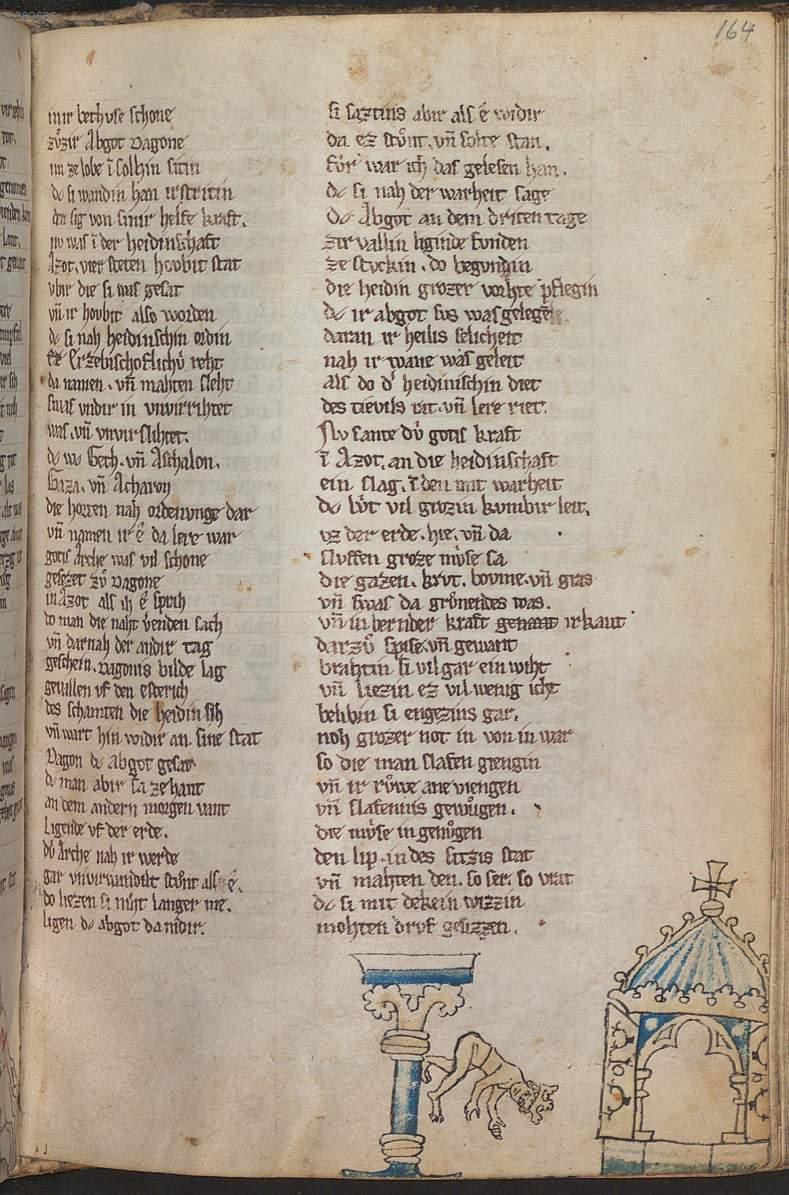 164
mir bethvse schone
zůzir Abgot Dagone
im ze lobe ī solhin sitin
dc si wandin han irstritin
den sig von sinir helfe kraft.
nv was ī der heidinschaft
Azot. vier steten hovbit stat
vbir die si was gesat
vn̄ ir hovbit also worden
dc si nah heidinschin ordin
Erzebischoflichů reht
da namen. vn̄ mahten sleht
swas vndir in vnvirrihtet
was. vn̄ vnvirslihtet.
dc wc Geth. vn̄ Aschalon.
Gaza. vn̄ Acharon
die horten nah ordenvnge dar
vn̄ namen ir ê da lere war
gotis Arche was vil schone
gesezet zů Dagone
in Azot als ih ê sprah
do man die naht venden sach
vn̄ darnah der andir tag
geschein. Dagonis bilde lag
gevallen vf den esterich
des schamten die heidin sih
vn̄ wart hin widir an sine stat
Dagon dc abgot gesat
dc man abir sa zehant
an dem andern morgen vant
Ligende vf der erde.
dů Arche nah ir werde
gar vnvirwandilt stůnt als ê.
do liezen si niht langer me.
ligen dc abgot da nidir.
si sazting abir als ê widir
da ez stůnt. vn̄ solte stan.
fůr war ich das gelesen han.
dc si nah der warheit sage
dc Abgot an dem driten tage
zir vallin liginde fvnden
ze stvckin. do begvndin
die heidin grozer vorhte pflegin
dc ir abgot svs was gelegē
daran ir heilis selicheit
nah ir wane was geleit
als do d' heidinischin diet
des tievils rat. vn̄ lere riet.
Nv sante dů gotis kraft
ī Azot. an die heidinschaft
ein slag. ī den mit warheit
dc bôt vil grozin kvmbir leit.
vz der erde. hie. vn̄ da
slvffen groze mvse sa
die gazen. krvt. bovme. vn̄ gras
vn̄ swas da grůnendes was.
vn̄ in bernder kraft genant irkant
darzů spise. vn̄ gewant
brahtin si vil gar ein wiht
vn̄ liezin ez vil wenig icht
belibin si engezins gar.
noh grozer not in von in war
so die man slafen giengin
vn̄ ir růwe ane viengen
vn̄ slafennis gewůgen.
die mvse in genůgen
den lip. in des sitzis stat
vn̄ mahten den. so ser. so vrat
dc si mit dekein wizzin
mohten drvf gesizzen.